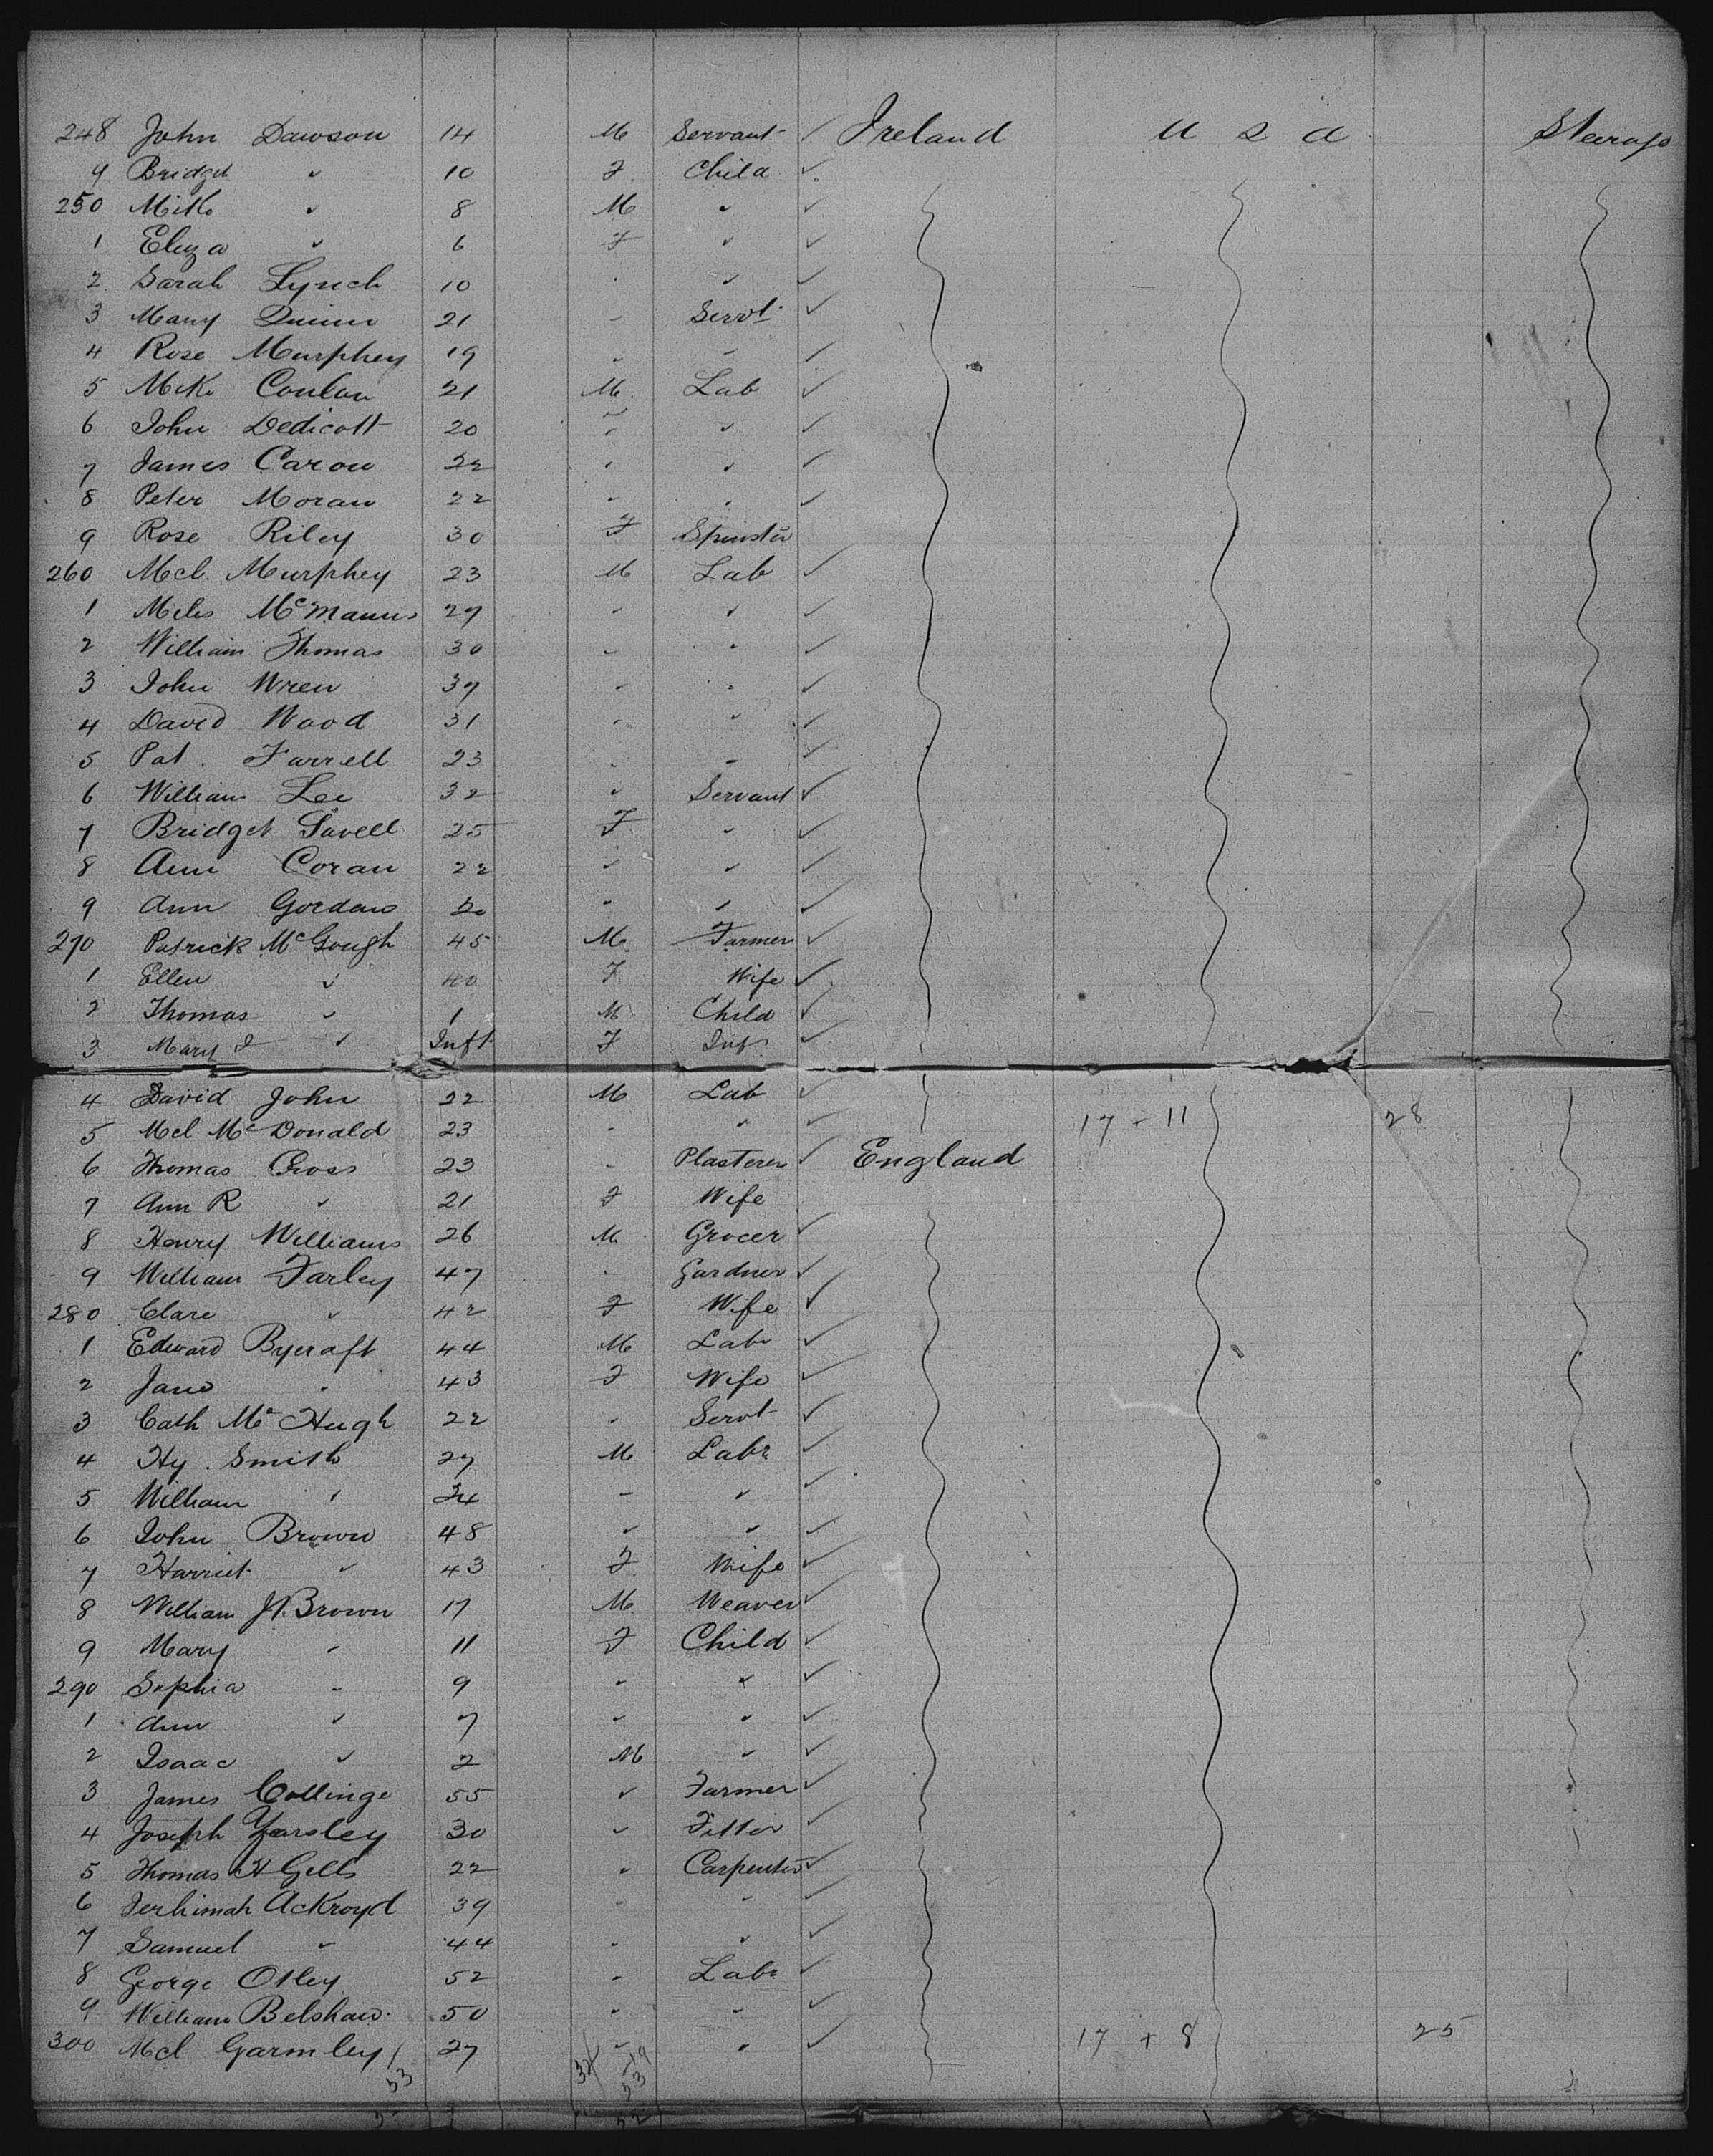 248 John Dawson 14 M Servant ✓ Ireland U S A Steerage
9 Bridget " 10 F Child ✓
250 Mike " 8 M " ✓
1 Eliza " 6 F " ✓
2 Sarah Lynch 10 " " ✓
3 Mary Quinn 21 " Servt ✓
4 Rose Murphey 19 " " ✓
5 Mike Conlan 21 M Lab ✓
6 John Dedicott 20 " " ✓
7 James Carow 22 " " ✓
8 Peter Moran 22 " " ✓
9 Rose Riley 30 F Spinster
260 Mcl. Murphey 23 M Lab ✓
1 Miles McManus 27 " " ✓
2 William Thomas 30 " " ✓
3 John Wren 37 " " ✓
4 David Wood 31 " " ✓
5 Pat. Farrell 23 " " ✓
6 William Lee 32 " Servant ✓
7 Bridget Savell 25 F " ✓
8 Ann Coran 22 " " ✓
9 Ann Gordan 20 " " ✓
270 Patrick McGough 45 M Farmer ✓
1 Ellen " 40 F Wife ✓
2 Thomas " 1 M Child ✓
3 Mary J " Inft F Inf ✓
4 David John 22 M Lab ✓
5 Mcl McDonald 23 " " ✓ 17 + 11 28
6 Thomas Cross 23 " Plasterer ✓ England
7 Ann R " 21 F Wife
8 Henry Williams 26 M Grocer ✓
9 William Farley 47 " Gardner ✓
280 Clare " 42 F Wife ✓
1 Edward Bycraft 44 M Labr ✓
2 Jane " 43 F Wife ✓
3 Cath McHugh 22 " Servt ✓
4 Hy. Smith 27 M Labr ✓
5 William " 24 " " ✓
6 John Brown 48 " " ✓
7 Harriet " 43 F Wife ✓
8 William H. Brown 17 M Weaver ✓
9 Mary " 11 F Child ✓
290 Sophia " 9 " " ✓
1 Ann " 7 " " ✓
2 Isaac " 2 M " ✓
3 James Collinge 55 " Farmer ✓
4 Joseph Yarsley 30 " Fitter ✓
5 Thomas H Gells 22 " Carpenter ✓
6 Jerhimah Ackroyd 39 " " ✓
7 Samuel " 44 " " ✓
8 George Otley 52 " Labr ✓
9 William Belshaw 50 " " ✓
300 Mcl Garmley 27 " " ✓ 17 + 8 25
53 34 19
53